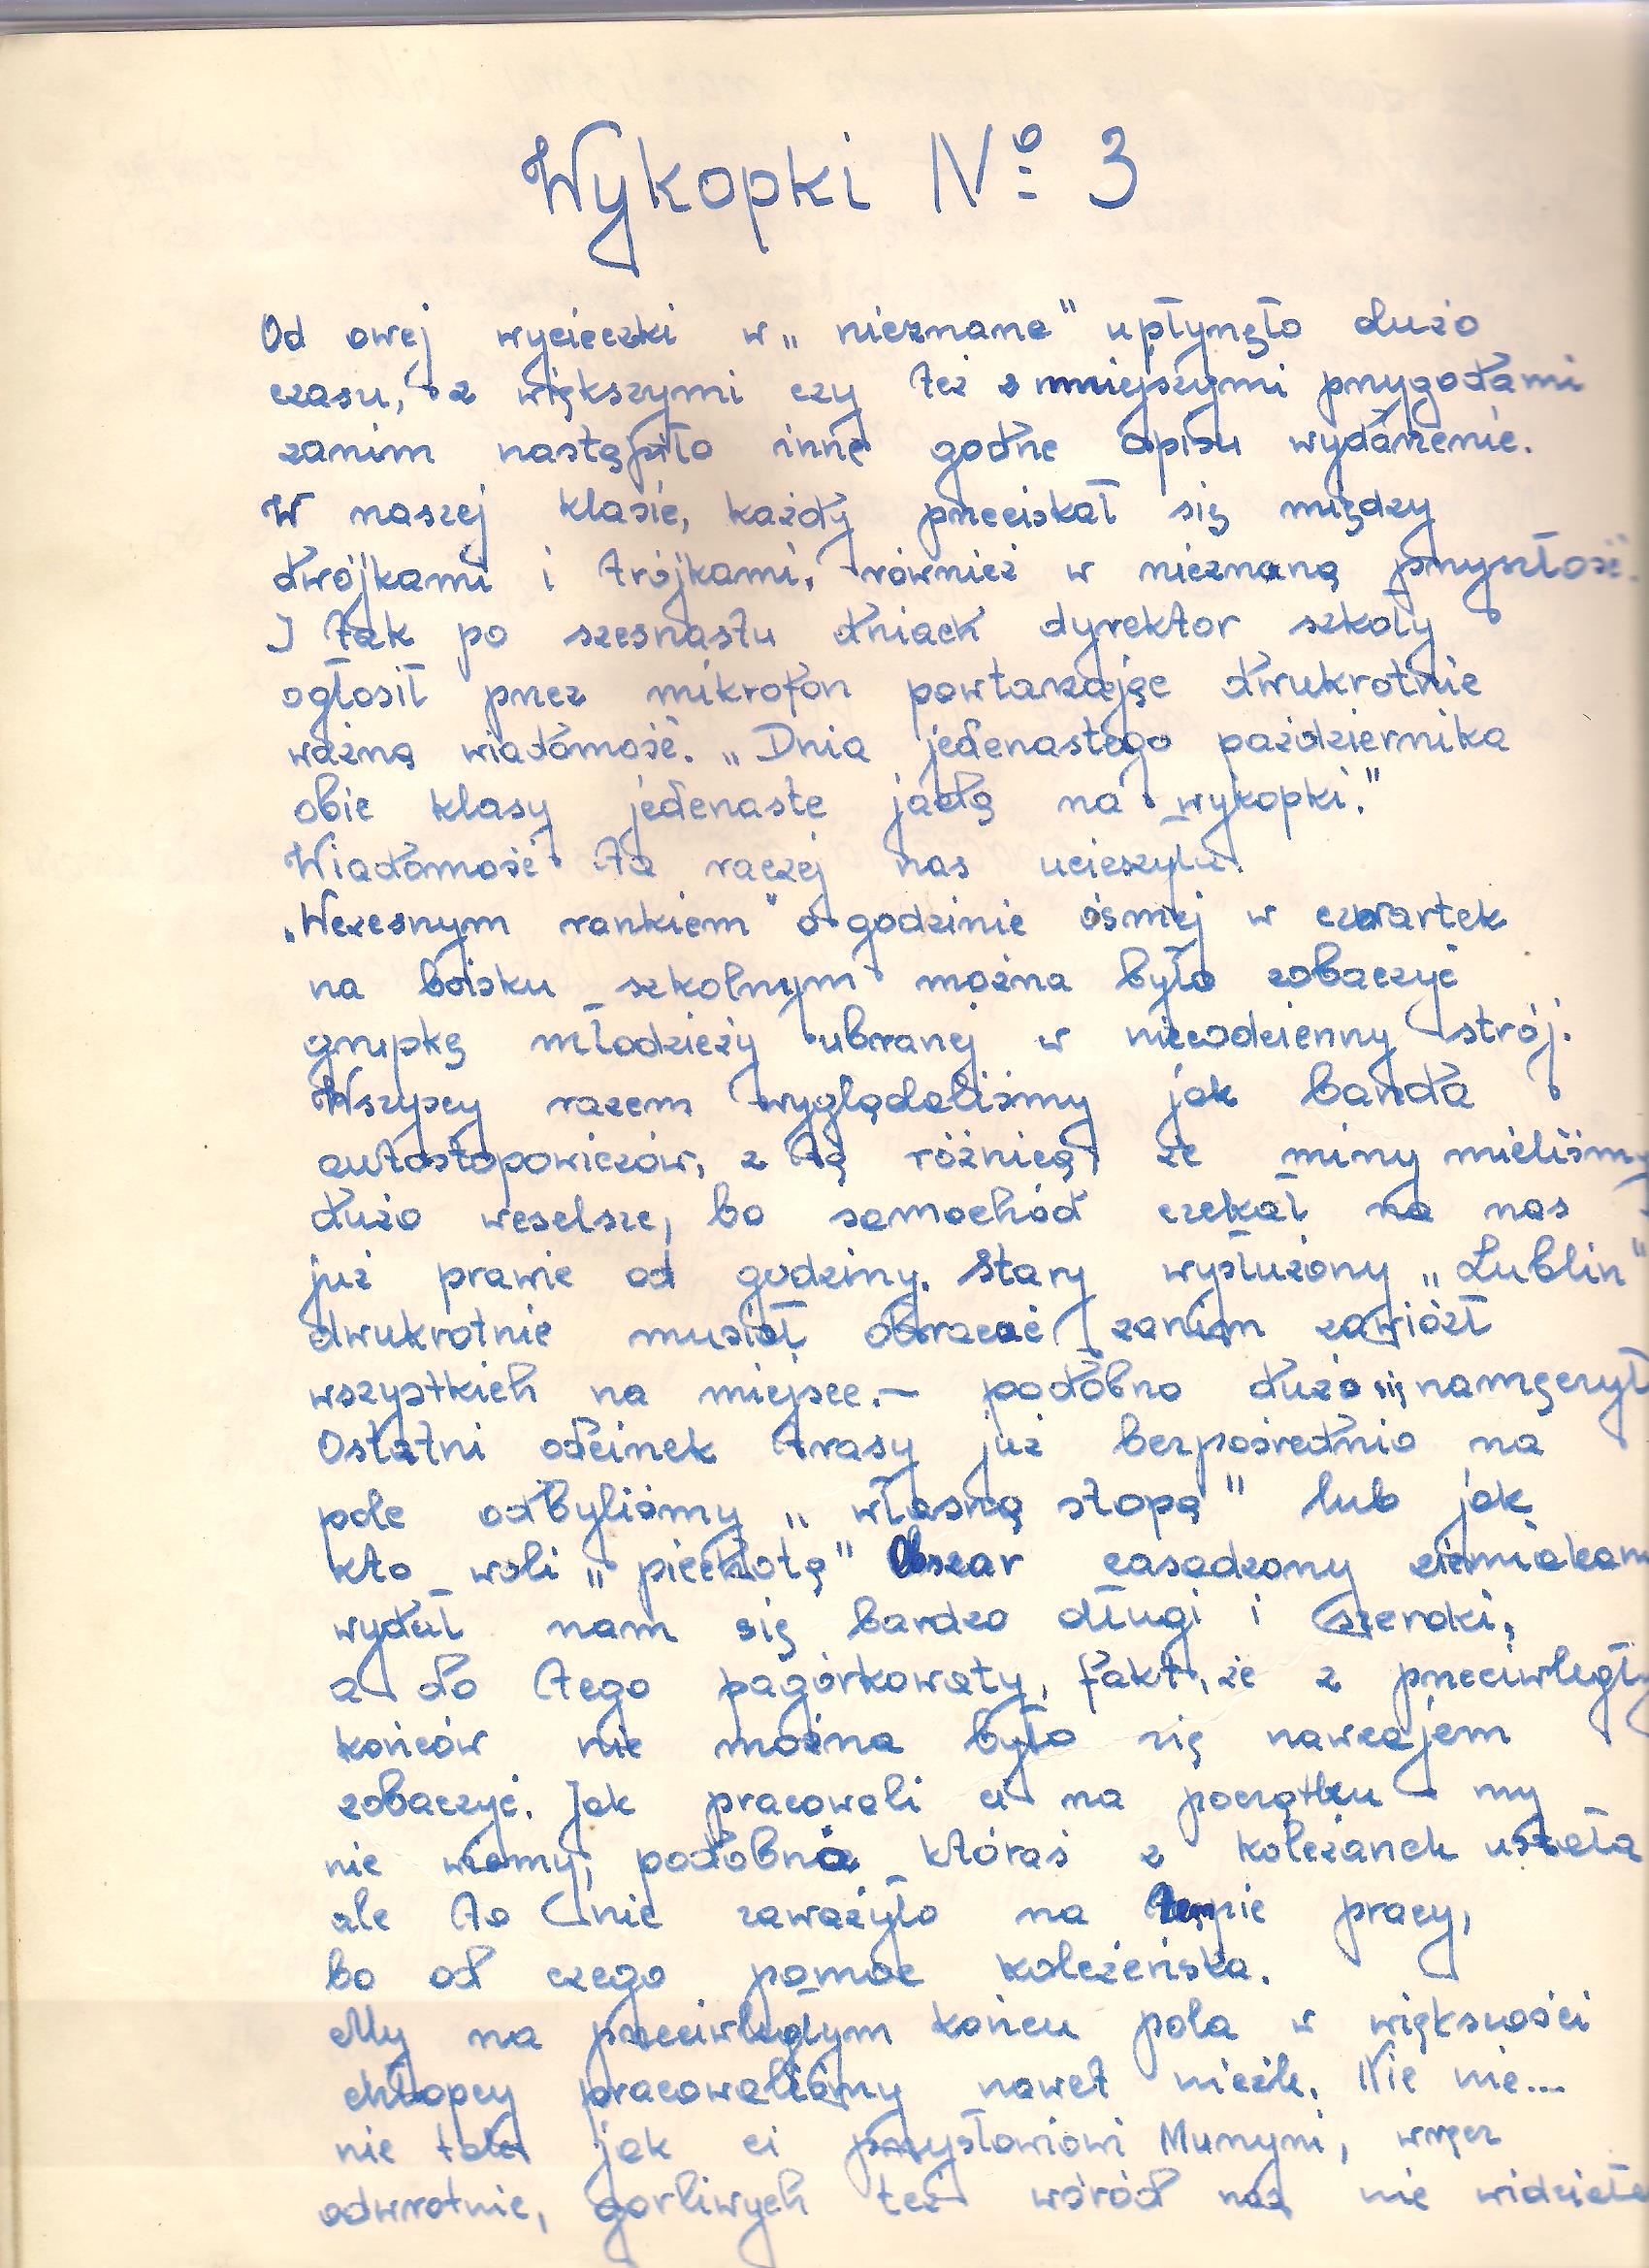 Wykopki Nº 3
Od owej wycieczki w „nieznane" upłynęło dużo
czasu, z większymi czy też z mniejszymi przygodami
zanim nastąpiło inne godne opisu wydarzenie.
W naszej klasie, każdy przeciskał się między
dwójkami i trójkami, również w nieznaną przyszłość.
I tak po szesnastu dniach dyrektor szkoły
ogłosił przez mikrofon powtarzając dwukrotnie
ważną wiadomość. „Dnia jedenastego października
obie klasy jedenaste jadą na wykopki."
Wiadomość ta raczej nas ucieszyła.
„Wczesnym rankiem" o godzinie ósmej w czwartek
na boisku szkolnym można było zobaczyć
grupkę młodzieży ubranej w niecodzienny strój.
Wszyscy razem wyglądaliśmy jak banda
autostopowiczów, z tą różnicą, że miny mieliśmy
dużo weselsze, bo samochód czekał na nas
już prawie od godziny. Stary wysłużony „Lublin"
dwukrotnie musiał obracać zanim zawiózł
wszystkich na miejsce. – podobno dużo się namęczył
Ostatni odcinek trasy już bezpośrednio na
pole odbyliśmy „własną stopą" lub jak
kto woli „piechotą" Obszar zasadzony ziemniakam
wydał nam się bardzo długi i szeroki,
a do tego pagórkowaty, fakt, że z przeciwległy
końców nie można było się nawzajem
zobaczyć. Jak pracowali ci na początku my
nie wiemy, podobno któraś z koleżanek ustała
ale to nie zaważyło na tempie pracy,
bo od czego pomoc koleżeńska.
My na przeciwległym końcu pola w większości
chłopcy pracowaliśmy nawet nieźle. Nie nie...
nie tak jak ci przysłowiowi Murzyni, wręcz
odwrotnie, gorliwych też wśród nas nie widziałe